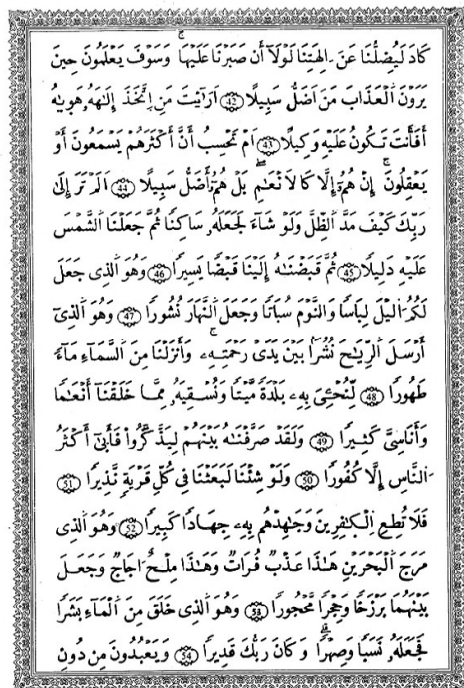 كَادَ لَيُضِلُّنَا عَنَ اٰلِهَتِنَا لَوْلَآ أَن صَبَرْنَا عَلَيْهَاۚ وَسَوْفَ يَعْلَمُونَ حِينَ
يَرَوْنَ اَ۬لْعَذَابَ مَنَ اَضَلُّ سَبِيلًا 42 اَرَٰٓيْتَ مَنِ اِ۪تَّخَذَ إِلَٰهَهُۥ هَوَيٰهُ
أَفَأَنتَ تَكُونُ عَلَيْهِ وَكِيلًا 43 اَمْ تَحْسِبُ أَنَّ أَكْثَرَهُمْ يَسْمَعُونَ أَوْ
يَعْقِلُونَۚ إِنْ هُمُۥٓ إِلَّا كَالَانْعَٰمِ بَلْ هُمُۥٓ أَضَلُّ سَبِيلًا 44 اَلَمْ تَرَ إِلَىٰ
رَبِّكَ كَيْفَ مَدَّ اَ۬لظِّلَّ وَلَوْ شَآءَ لَجَعَلَهُۥ سَاكِنًا ثُمَّ جَعَلْنَا اَ۬لشَّمْسَ
عَلَيْهِ دَلِيلًا 45 ثُمَّ قَبَضْنَٰهُ إِلَيْنَا قَبْضًا يَسِيرًا 46 وَهُوَ اَ۬لذِى جَعَلَ
لَكُمُ اَ۬ليْلَ لِبَاسًا وَالنَّوْمَ سُبَاتًا وَجَعَلَ اَ۬لنَّهَارَ نُشُورًا 47 وَهُوَ اَ۬لذِىٓ
أَرْسَلَ اَ۬لرِّيَٰحَ نُشُرًۢا بَيْنَ يَدَىْ رَحْمَتِهِۦۚ وَأَنزَلْنَا مِنَ اَ۬لسَّمَآءِ مَآءً
طَهُورًا 48 لِّنُحْۦِىَ بِهِۦ بَلْدَةً مَّيْتًا وَنُسْقِيَهُۥ مِمَّا خَلَقْنَآ أَنْعَٰمًا
وَأَنَاسِىَّ كَثِيرًا 49 وَلَقَدْ صَرَّفْنَٰهُ بَيْنَهُمْ لِيَذَّكَّرُوا۟ فَأَبَىٰٓ أَكْثَرُ
اُ۬لنَّاسِ إِلَّا كُفُورًا 50 وَلَوْ شِئْنَا لَبَعَثْنَا فِى كُلِّ قَرْيَةٍ نَّذِيرًا 51
فَلَا تُطِعِ اِ۬لْكَٰفِرِينَ وَجَٰهِدْهُم بِهِۦ جِهَادًا كَبِيرًا 52 وَهُوَ اَ۬لذِى
مَرَجَ اَ۬لْبَحْرَيْنِ هَٰذَا عَذْبٌ فُرَاتٌ وَهَٰذَا مِلْحٌ اُجَاجٌ وَجَعَلَ
بَيْنَهُمَا بَرْزَخًا وَحِجْرًا مَّحْجُورًا 53 وَهُوَ اَ۬لذِى خَلَقَ مِنَ اَ۬لْمَآءِ بَشَرًا
فَجَعَلَهُۥ نَسَبًا وَصِهْرًا وَكَانَ رَبُّكَ قَدِيرًا 54 وَيَعْبُدُونَ مِن دُونِ